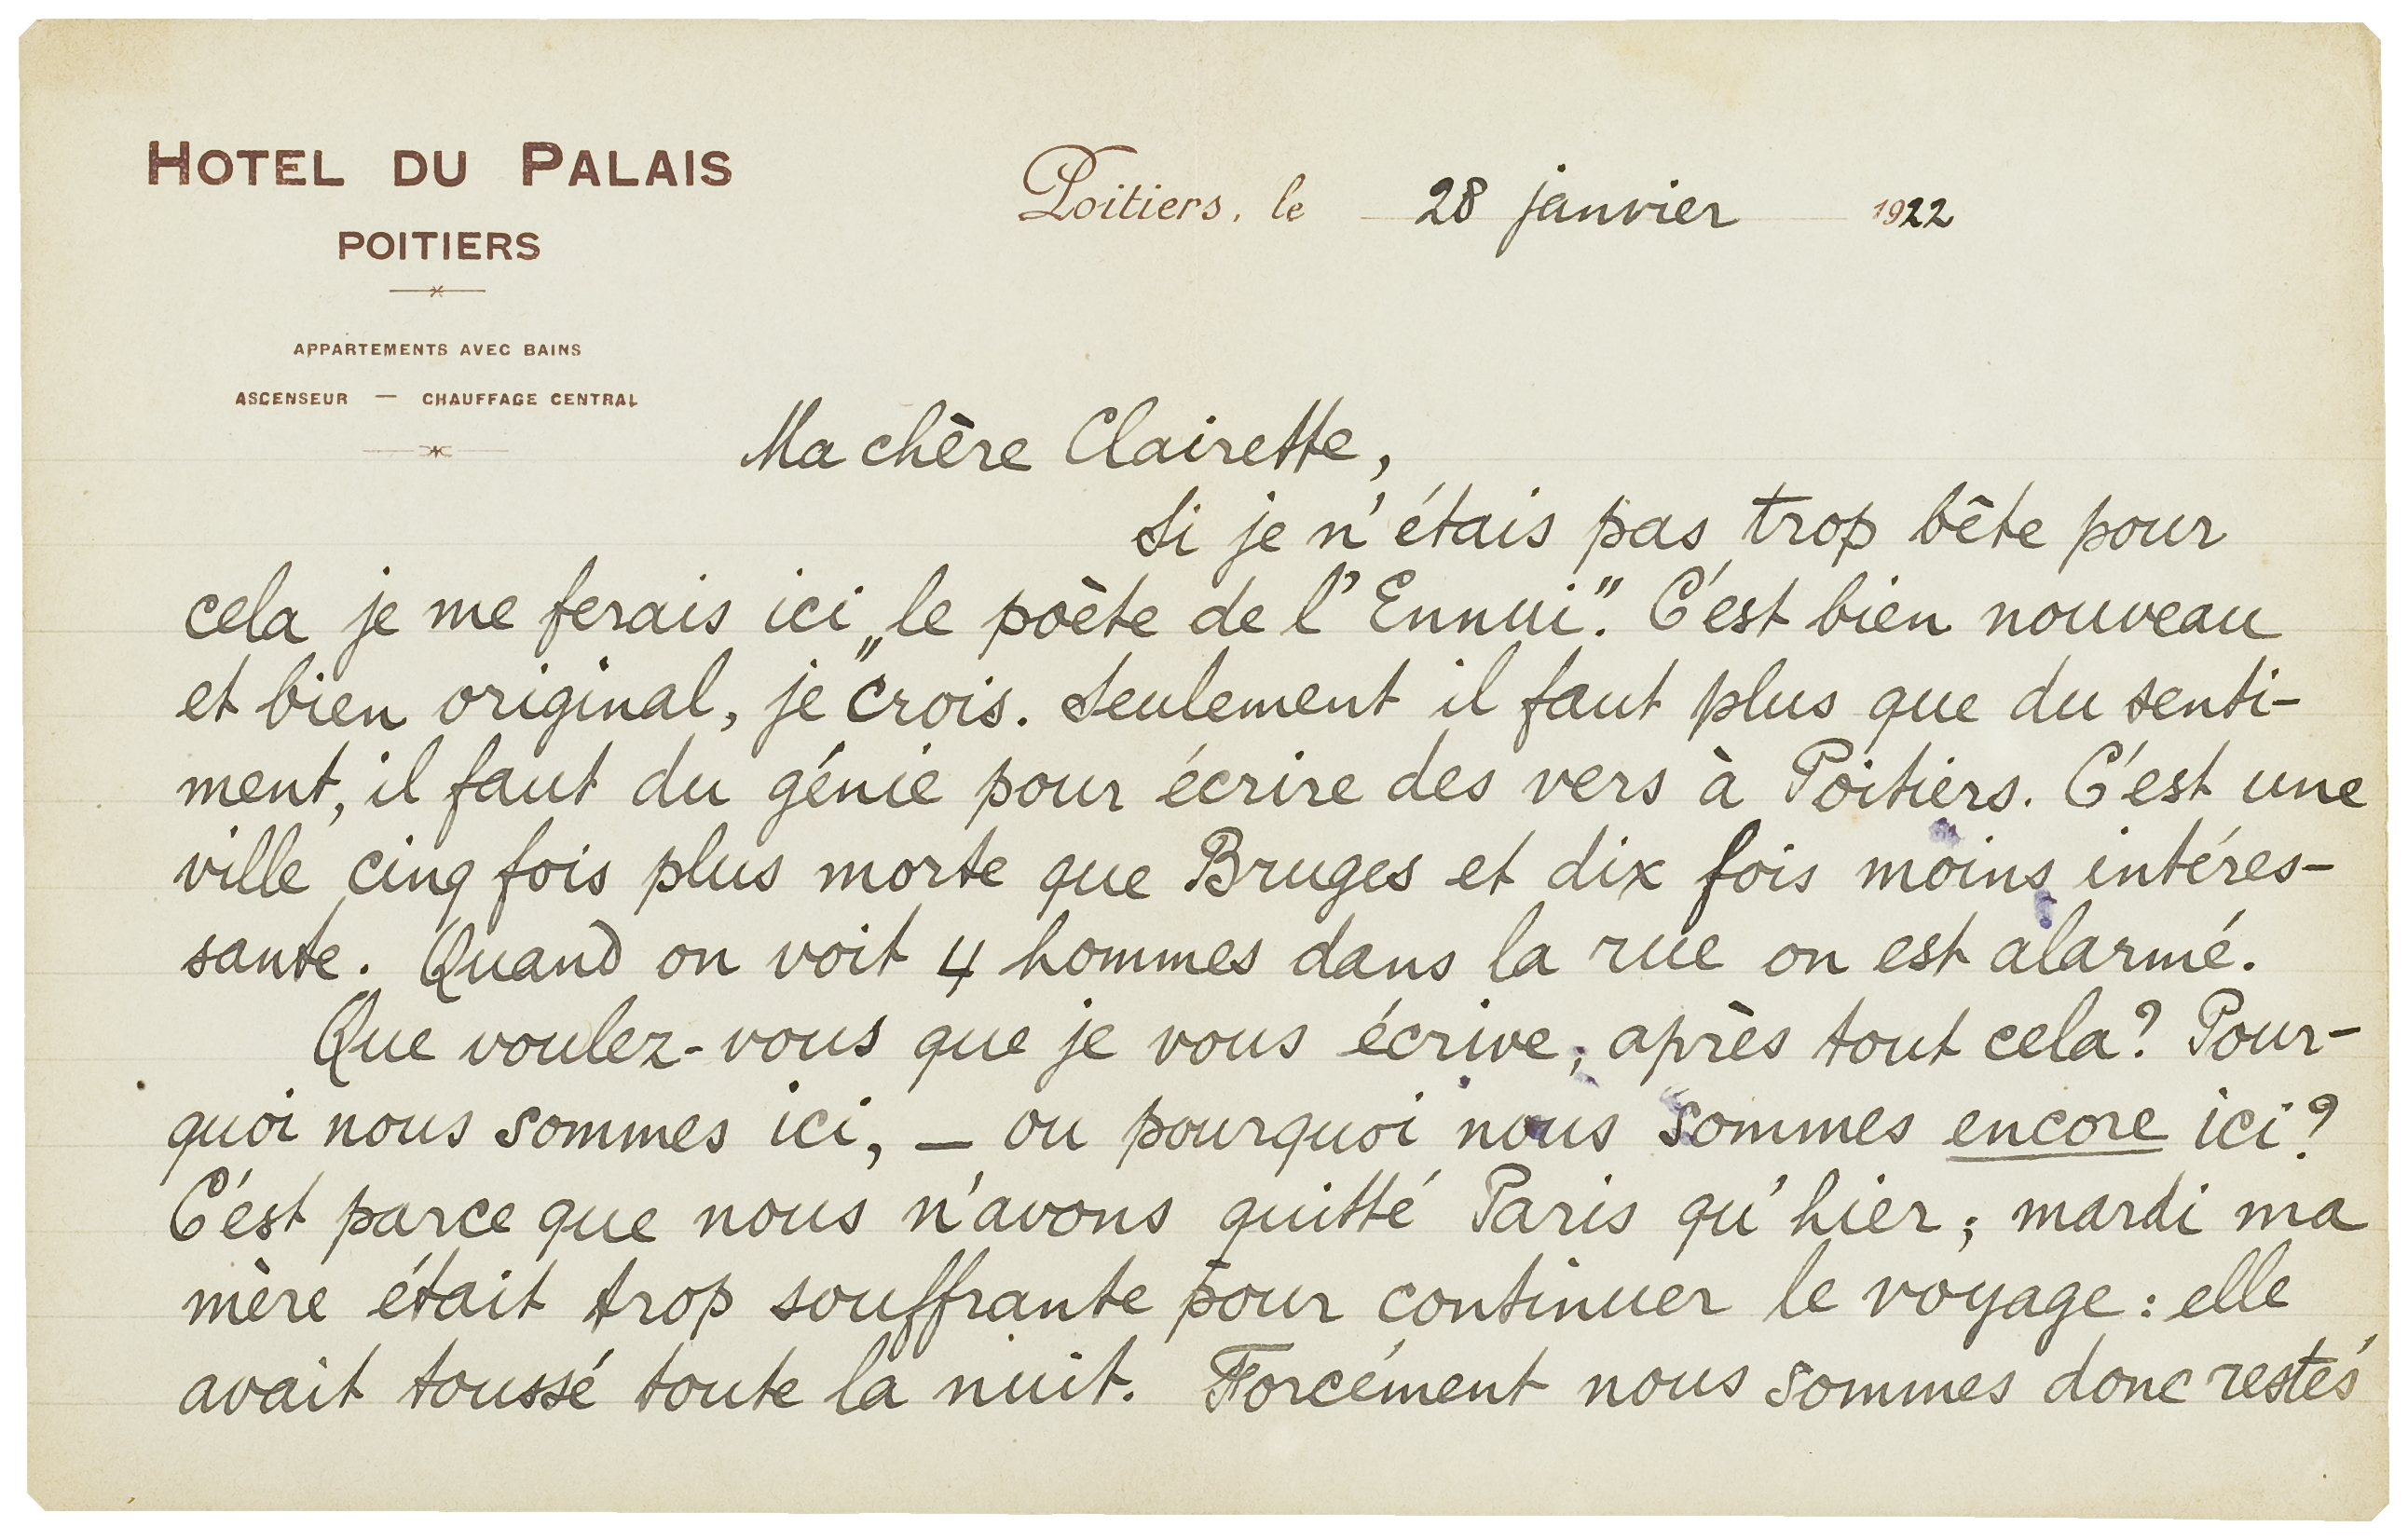 HOTEL DU PALAIS
POITIERS
APPARTEMENTS AVEC BAINS
ASCENSEUR — CHAUFFAGE CENTRAL
Poitiers, le 28 janvier 1922
Ma chère Clairette,
Si je n'étais pas trop bête pour
cela je me ferais ici „le poète de l'Ennui". C'est bien nouveau
et bien original, je "crois. Seulement il faut plus que du senti-
ment, il faut du génie pour écrire des vers à Poitiers. C'est une
ville cinq fois plus morte que Bruges et dix fois moins intéres-
sante. Quand on voit 4 hommes dans la rue on est alarmé.
Que voulez-vous que je vous écrive, après tout cela? Pour-
quoi nous sommes ici, — ou pourquoi nous sommes encore ici?
C'est parce que nous n'avons quitté Paris qu'hier; mardi ma
mère était trop souffrante pour continuer le voyage: elle
avait toussé toute la nuit. Forcément nous sommes donc restés